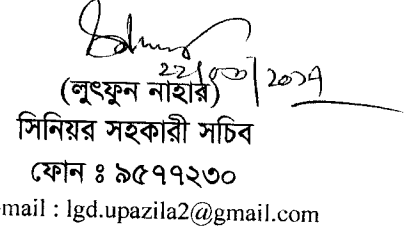 (লুৎফুন নাহার)
সিনিয়র সহকারী সচিব
ফোন ঃ ৯৫৭৭২৩০
-mail : lgd.upazila2@gmail.com